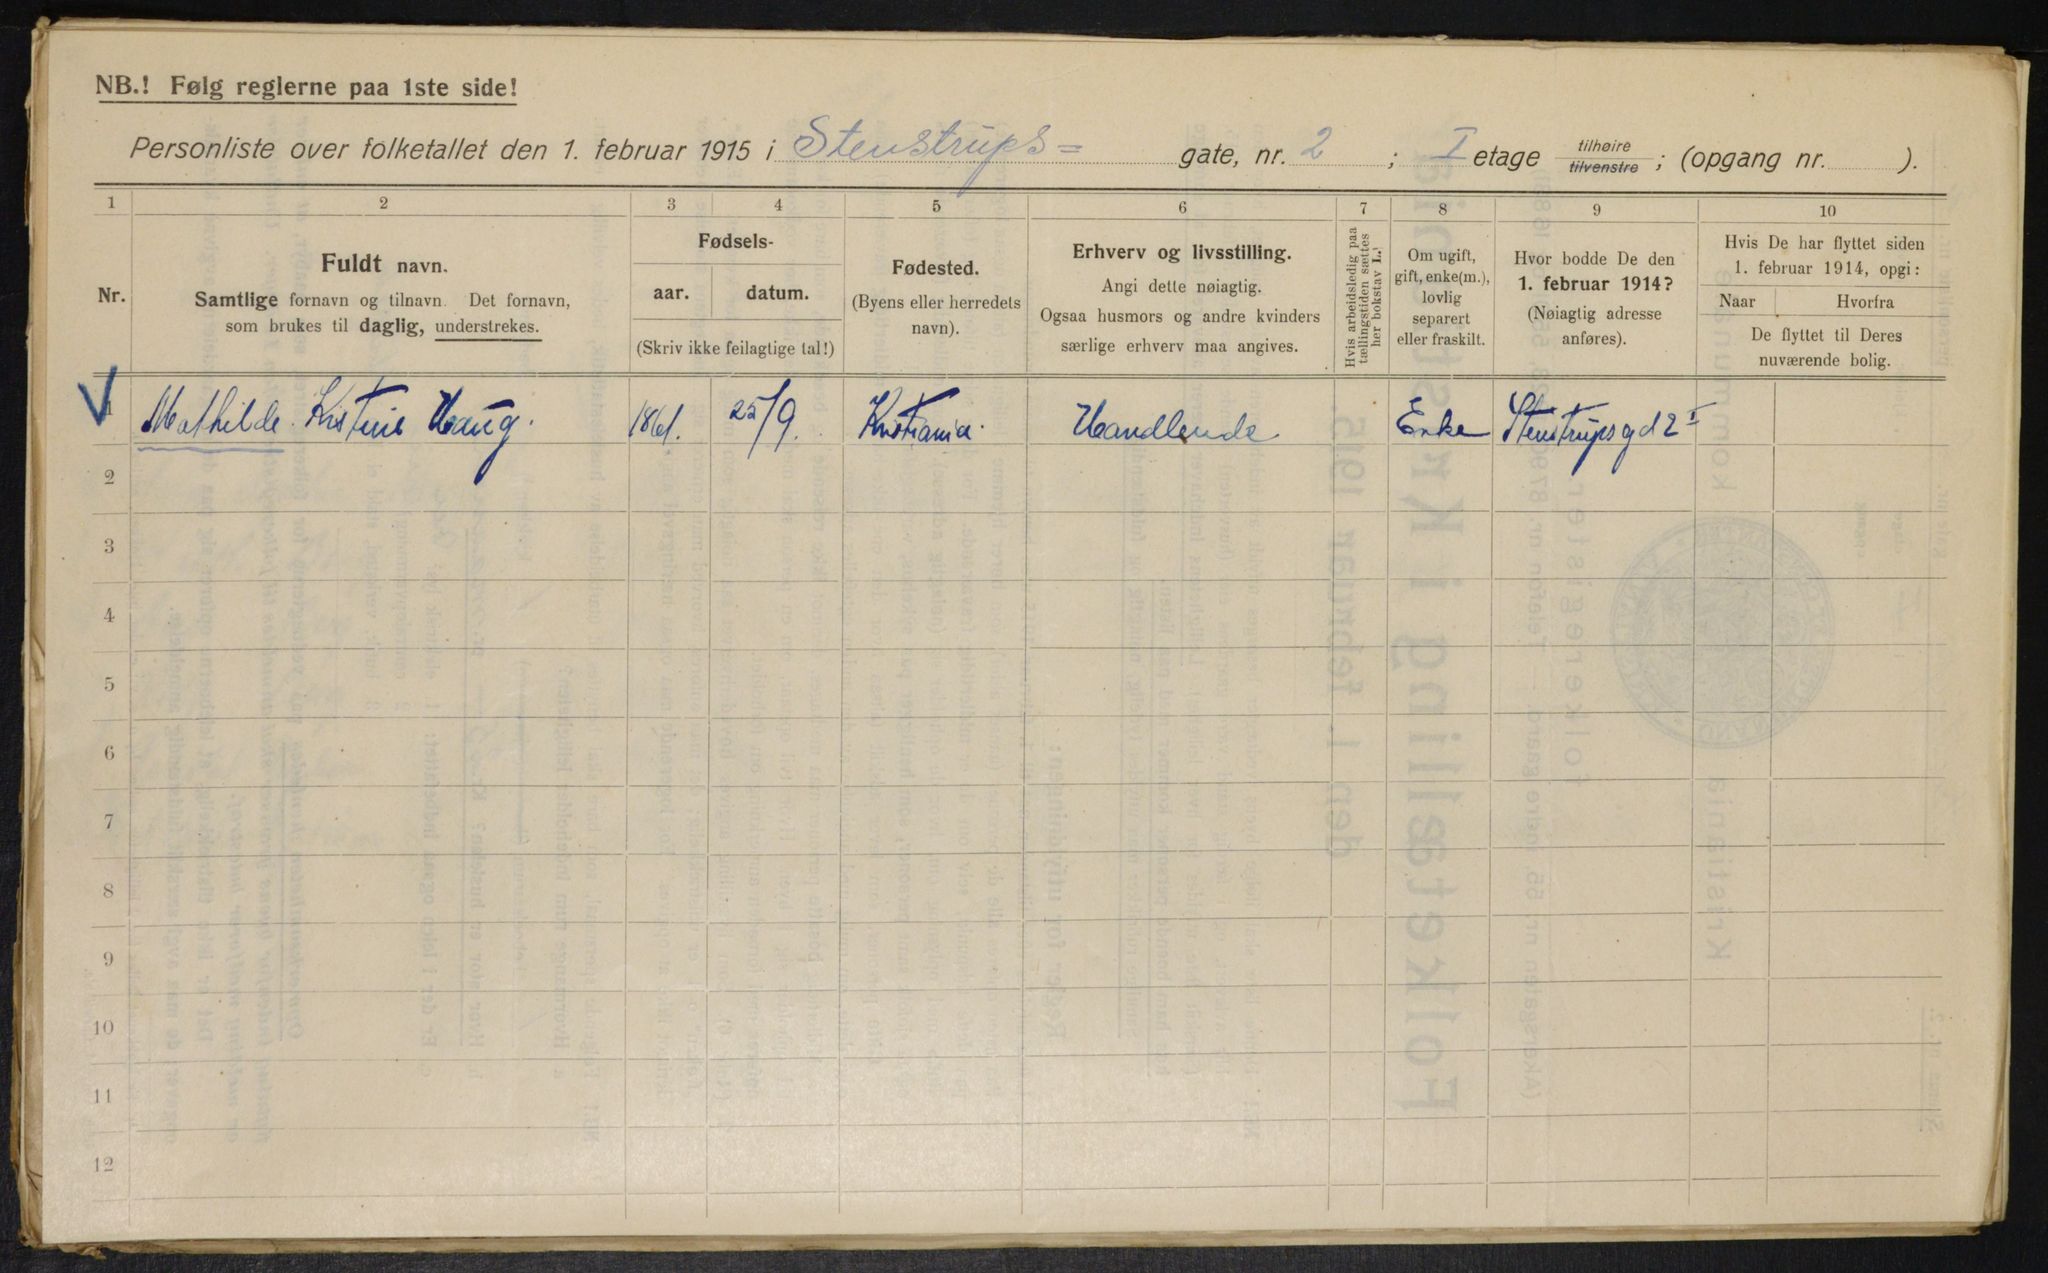 NB.! Følg reglerne paa 1ste side!
Personliste over folketallet den 1. februar 1915 i Stenstrups= gate, nr. 2 ; I etage tilhøire tilvenstre ; (opgang nr. ).
1 2 3 4 5 6 7 8 9 10
Nr.
Fuldt navn.
Samtlige fornavn og tilnavn. Det fornavn,
som brukes til daglig, understrekes.
Fødsels-
aar. datum.
(Skriv ikke feilagtige tal!)
Fødested.
(Byens eller herredets
navn).
Erhverv og livsstilling.
Angi dette nøiagtig.
Ogsaa husmors og andre kvinders
særlige erhverv maa angives.
Hvis arbeidsledig paa
tællingstiden sættes
her bokstav L.!
Om ugift,
gift, enke(m.),
lovlig
separert
eller fraskilt.
Hvor bodde De den
1. februar 1914?
(Nøiagtig adresse
anføres).
Hvis De har flyttet siden
1. februar 1914, opgi:
Naar Hvorfra
De flyttet til Deres
nuværende bolig.
1 Mathilde Kristine Haug. 1861. 25/9. Kristiania. Handlende Enke Stenstrupsgd 2 I
2
3
4
5
6
7
8
9
10
11
12